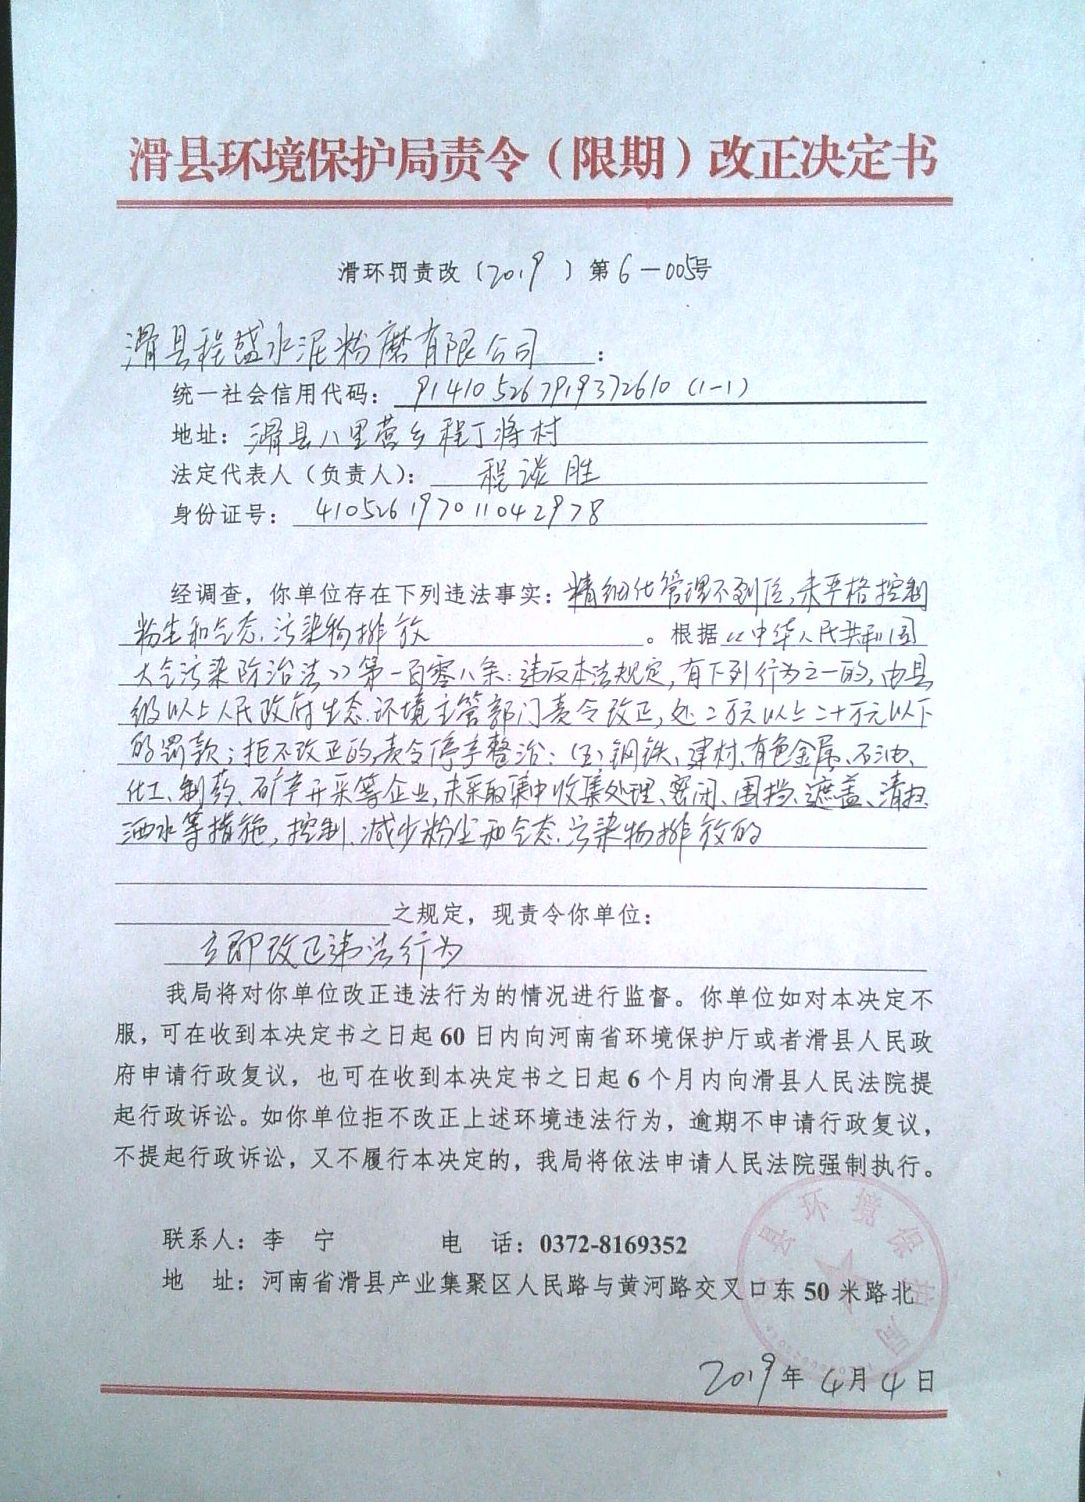 滑县环境保护局责令（限期）改正决定书
滑环罚责改（2019）第6-005号
滑县程盛水泥粉磨有限公司：
统一社会信用代码：914105267919372610（1-1）
地址：滑县八里营乡程丁将村
法定代表人（负责人）：程谈胜
身份证号：410526197011042978
经调查，你单位存在下列违法事实：精细化管理不到位，未严格控制
粉尘和气态污染物排放。根据《中华人民共和国
大气污染防治法》第一百零八条：违反本法规定，有下列行为之一的，由县
级以上人民政府生态环境主管部门责令改正，处二万元以上二十万元以下
的罚款；拒不改正的，责令停产整治：（五）钢铁、建材、有色金属、石油、
化工、制药、矿产开采等企业，未采取集中收集处理、密闭、围挡、遮盖、清扫、
洒水等措施，控制、减少粉尘和气态污染物排放的
之规定，现责令你单位：
立即改正违法行为
我局将对你单位改正违法行为的情况进行监督。你单位如对本决定不
服，可在收到本决定书之日起60日内向河南省环境保护厅或者滑县人民政
府申请行政复议，也可在收到本决定书之日起6个月内向滑县人民法院提
起行政诉讼。如你单位拒不改正上述环境违法行为，逾期不申请行政复议，
不提起行政诉讼，又不履行本决定的，我局将依法申请人民法院强制执行。
联系人：李 宁 电 话：0372-8169352
地 址：河南省滑县产业集聚区人民路与黄河路交叉口东50米路北
县环境保护局
2019年4月4日